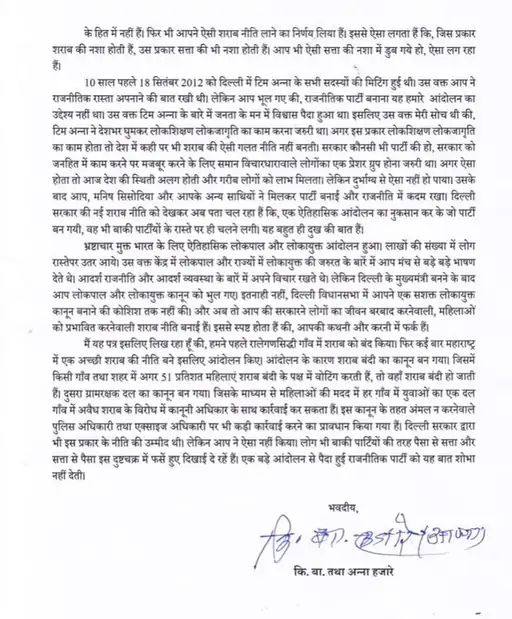 के हित में नहीं हैं। फिर भी आपने ऐसी शराब नीति लाने का निर्णय लिया हैं। इससे ऐसा लगता हैं कि, जिस प्रकार
शराब की नशा होती हैं, उस प्रकार सत्ता की भी नशा होती हैं। आप भी ऐसी सत्ता की नशा में डुब गये हो, ऐसा लग रहा
हैं।
10 साल पहले 18 सितंबर 2012 को दिल्ली में टिम अन्ना के सभी सदस्यों की मिटिंग हुई थी। उस वक्त आप ने
राजनीतिक रास्ता अपनाने की बात रखी थी। लेकिन आप भूल गए की, राजनीतिक पार्टी बनाना यह हमारे आंदोलन का
उद्देश्य नहीं था। उस वक्त टिम अन्ना के बारे में जनता के मन में विश्वास पैदा हुआ था। इसलिए उस वक्त मेरी सोच थी की,
टिम अन्ना ने देशभर घुमकर लोकशिक्षण लोकजागृति का काम करना जरुरी था। अगर इस प्रकार लोकशिक्षण लोकजागृति
का काम होता तो देश में कही पर भी शराब की ऐसी गलत नीति नहीं बनती। सरकार कौनसी भी पार्टी की हो, सरकार को
जनहित में काम करने पर मजबूर करने के लिए समान विचारधारावाले लोगोंका एक प्रेशर ग्रुप होना जरुरी था। अगर ऐसा
होता तो आज देश की स्थिती अलग होती और गरीब लोगों को लाभ मिलता। लेकिन दुर्भाग्य से ऐसा नहीं हो पाया। उसके
बाद आप, मनिष सिसोदिया और आपके अन्य साथियों ने मिलकर पार्टी बनाई और राजनीति में कदम रखा। दिल्ली
सरकार की नई शराब नीति को देखकर अब पता चल रहा हैं कि, एक ऐतिहासिक आंदोलन का नुकसान कर के जो पार्टी
बन गयी, वह भी बाकी पार्टीयों के रास्ते पर ही चलने लगी। यह बहुत ही दुख की बात हैं।
भ्रष्टाचार मुक्त भारत के लिए ऐतिहासिक लोकपाल और लोकायुक्त आंदोलन हुआ। लाखों की संख्या में लोग
रास्तेपर उतर आये। उस वक्त केंद्र में लोकपाल और राज्यों में लोकायुक्त की जरुरत के बारें में आप मंच से बड़े बड़े भाषण
देते थे। आदर्श राजनीति और आदर्श व्यवस्था के बारें में अपने विचार रखते थे। लेकिन दिल्ली के मुख्यमंत्री बनने के बाद
आप लोकपाल और लोकायुक्त कानून को भुल गए। इतनाही नहीं, दिल्ली विधानसभा में आपने एक सशक्त लोकायुक्त
कानून बनाने की कोशिश तक नहीं की। और अब तो आप की सरकारने लोगों का जीवन बरबाद करनेवाली, महिलाओं
को प्रभावित करनेवाली शराब नीति बनाई हैं। इससे स्पष्ट होता हैं की, आपकी कथनी और करनी में फर्क हैं।
मैं यह पत्र इसलिए लिख रहा हूँ की, हमने पहले रालेगणसिद्धी गाँव में शराब को बंद किया। फिर कई बार महाराष्ट्र
में एक अच्छी शराब की नीति बने इसलिए आंदोलन किए। आंदोलन के कारण शराब बंदी का कानून बन गया। जिसमें
किसी गाँव तथा शहर में अगर 51 प्रतिशत महिलाएं शराब बंदी के पक्ष में वोटिंग करती हैं, तो वहाँ शराब बंदी हो जाती
हैं। दुसरा ग्रामरक्षक दल का कानून बन गया। जिसके माध्यम से महिलाओं की मदद में हर गाँव में युवाओं का एक दल
गाँव में अवैध शराब के विरोध में कानूनी अधिकार के साथ कार्रवाई कर सकता हैं। इस कानून के तहत अंमल न करनेवाले
पुलिस अधिकारी तथा एक्साइज अधिकारी पर भी कड़ी कार्रवाई करने का प्रावधान किया गया हैं। दिल्ली सरकार द्वारा
भी इस प्रकार के नीति की उम्मीद थी। लेकिन आप ने ऐसा नहीं किया। लोग भी बाकी पार्टियों की तरह पैसा से सत्ता और
सत्ता से पैसा इस दुष्टचक्र में फसें हुए दिखाई दे रहें हैं। एक बड़े आंदोलन से पैदा हुई राजनीतिक पार्टी को यह बात शोभा
नहीं देती।
भवदीय,
कि. बा. तथा अन्ना हजारे